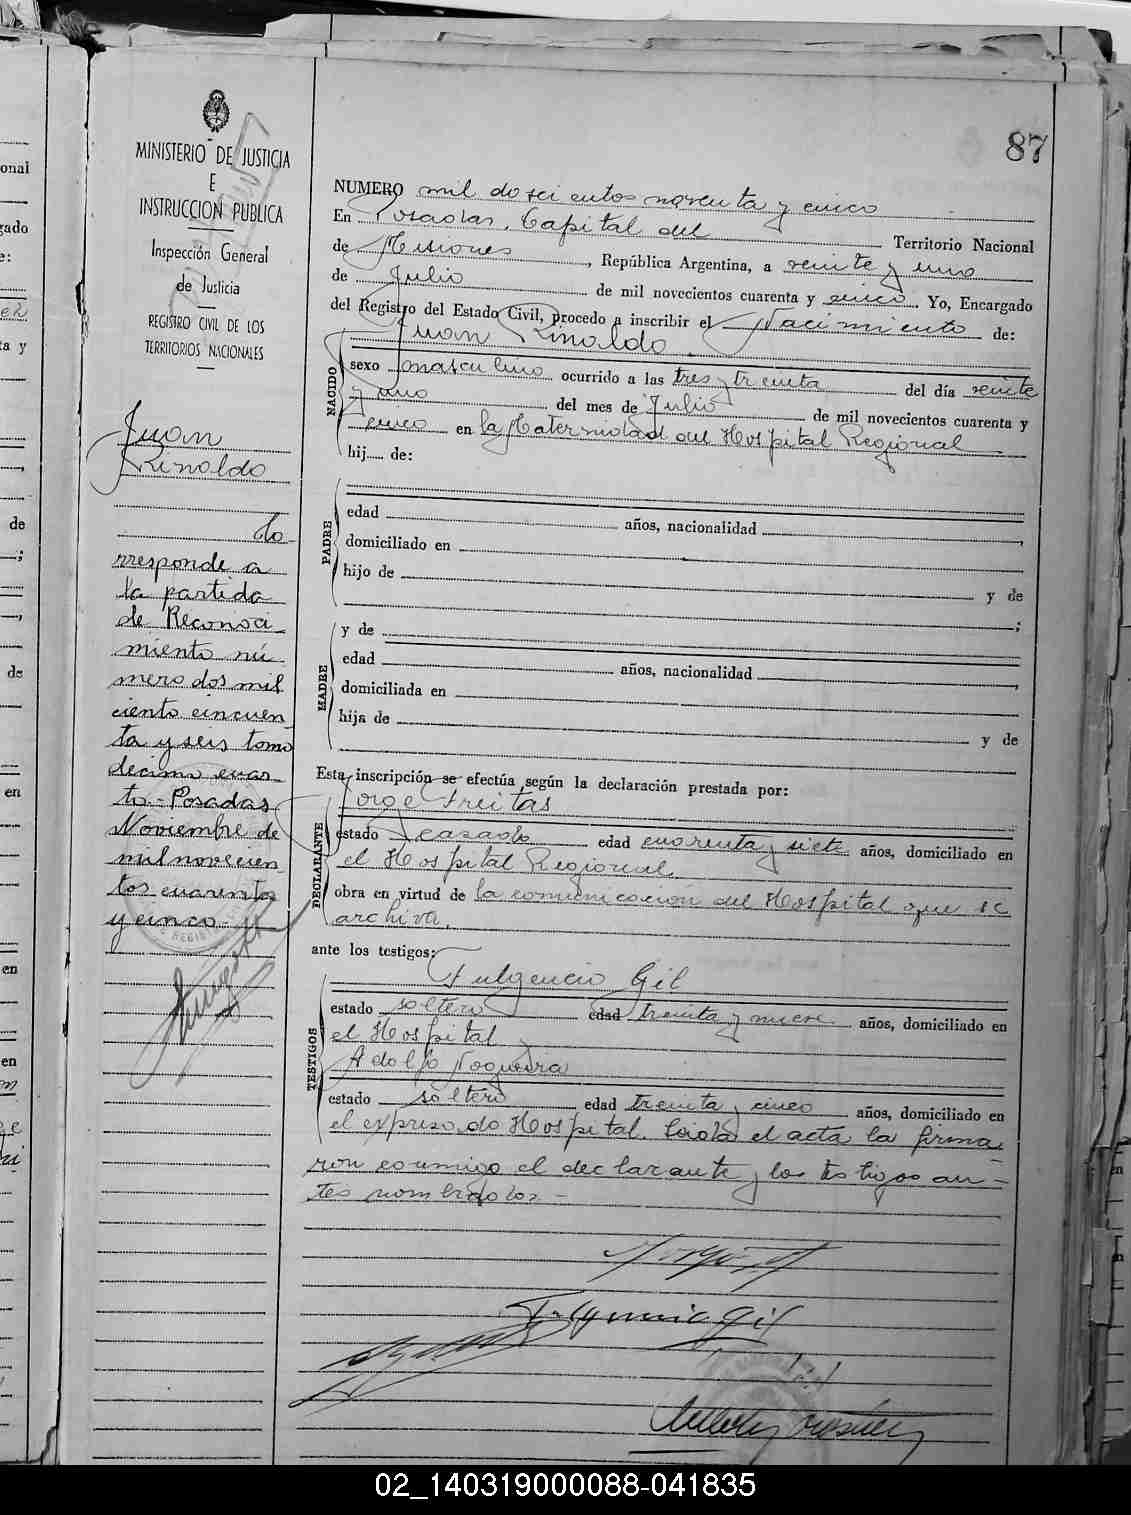 87
MINISTERIO DE JUSTICIA
E
INSTRUCCION PUBLICA
Inspección General
de Justicia
REGISTRO CIVIL DE LOS
TERRITORIOS NACIONALES
NUMERO mil doscientos noventa y cinco
En Posadas, Capital del Territorio Nacional
de Misiones, República Argentina, a veinte y uno
de Julio de mil novecientos cuarenta y cinco Yo, Encargado
del Registro del Estado Civil, procedo a inscribir el Nacimiento de:
Juan Rinaldo
NACIDO
sexo masculino ocurrido a las tres y treinta del día veinte
y uno del mes de Julio de mil novecientos cuarenta y
cinco en la Maternidad del Hospital Regional
hij de:
PADRE
edad años, nacionalidad ,
domiciliado en
hijo de y de
;
MADRE
y de
edad años, nacionalidad ,
domiciliada en
hija de y de
Esta inscripción se efectúa según la declaración prestada por:
Jorge Freitas
DECLARANTE
estado casado edad cuarenta y siete años, domiciliado en
el Hospital Regional,
obra en virtud de la comunicación del Hospital que se
archiva.
ante los testigos:
Fulgencio Gil
TESTIGOS
estado soltero edad treinta y nueve años, domiciliado en
el Hospital y
Adolfo Nogueira
estado soltero edad treinta y cinco años, domiciliado en
el expresado Hospital. Leida el acta la firma
ron conmigo el declarante y los testigos an-
tes nombrados.-
Fulgencio Gil
Juan
Rinaldo
Co-
rresponde a
la partida
de Reconoci
miento nú
mero dos mil
ciento cincuen
ta y seis tomo
decimo cuar-
to.- Posadas
Noviembre de
mil novecien
tos cuarenta
y cinco.-
onal
gado
e:
ta y
de
de
en
en
en
02_140319000088-041835